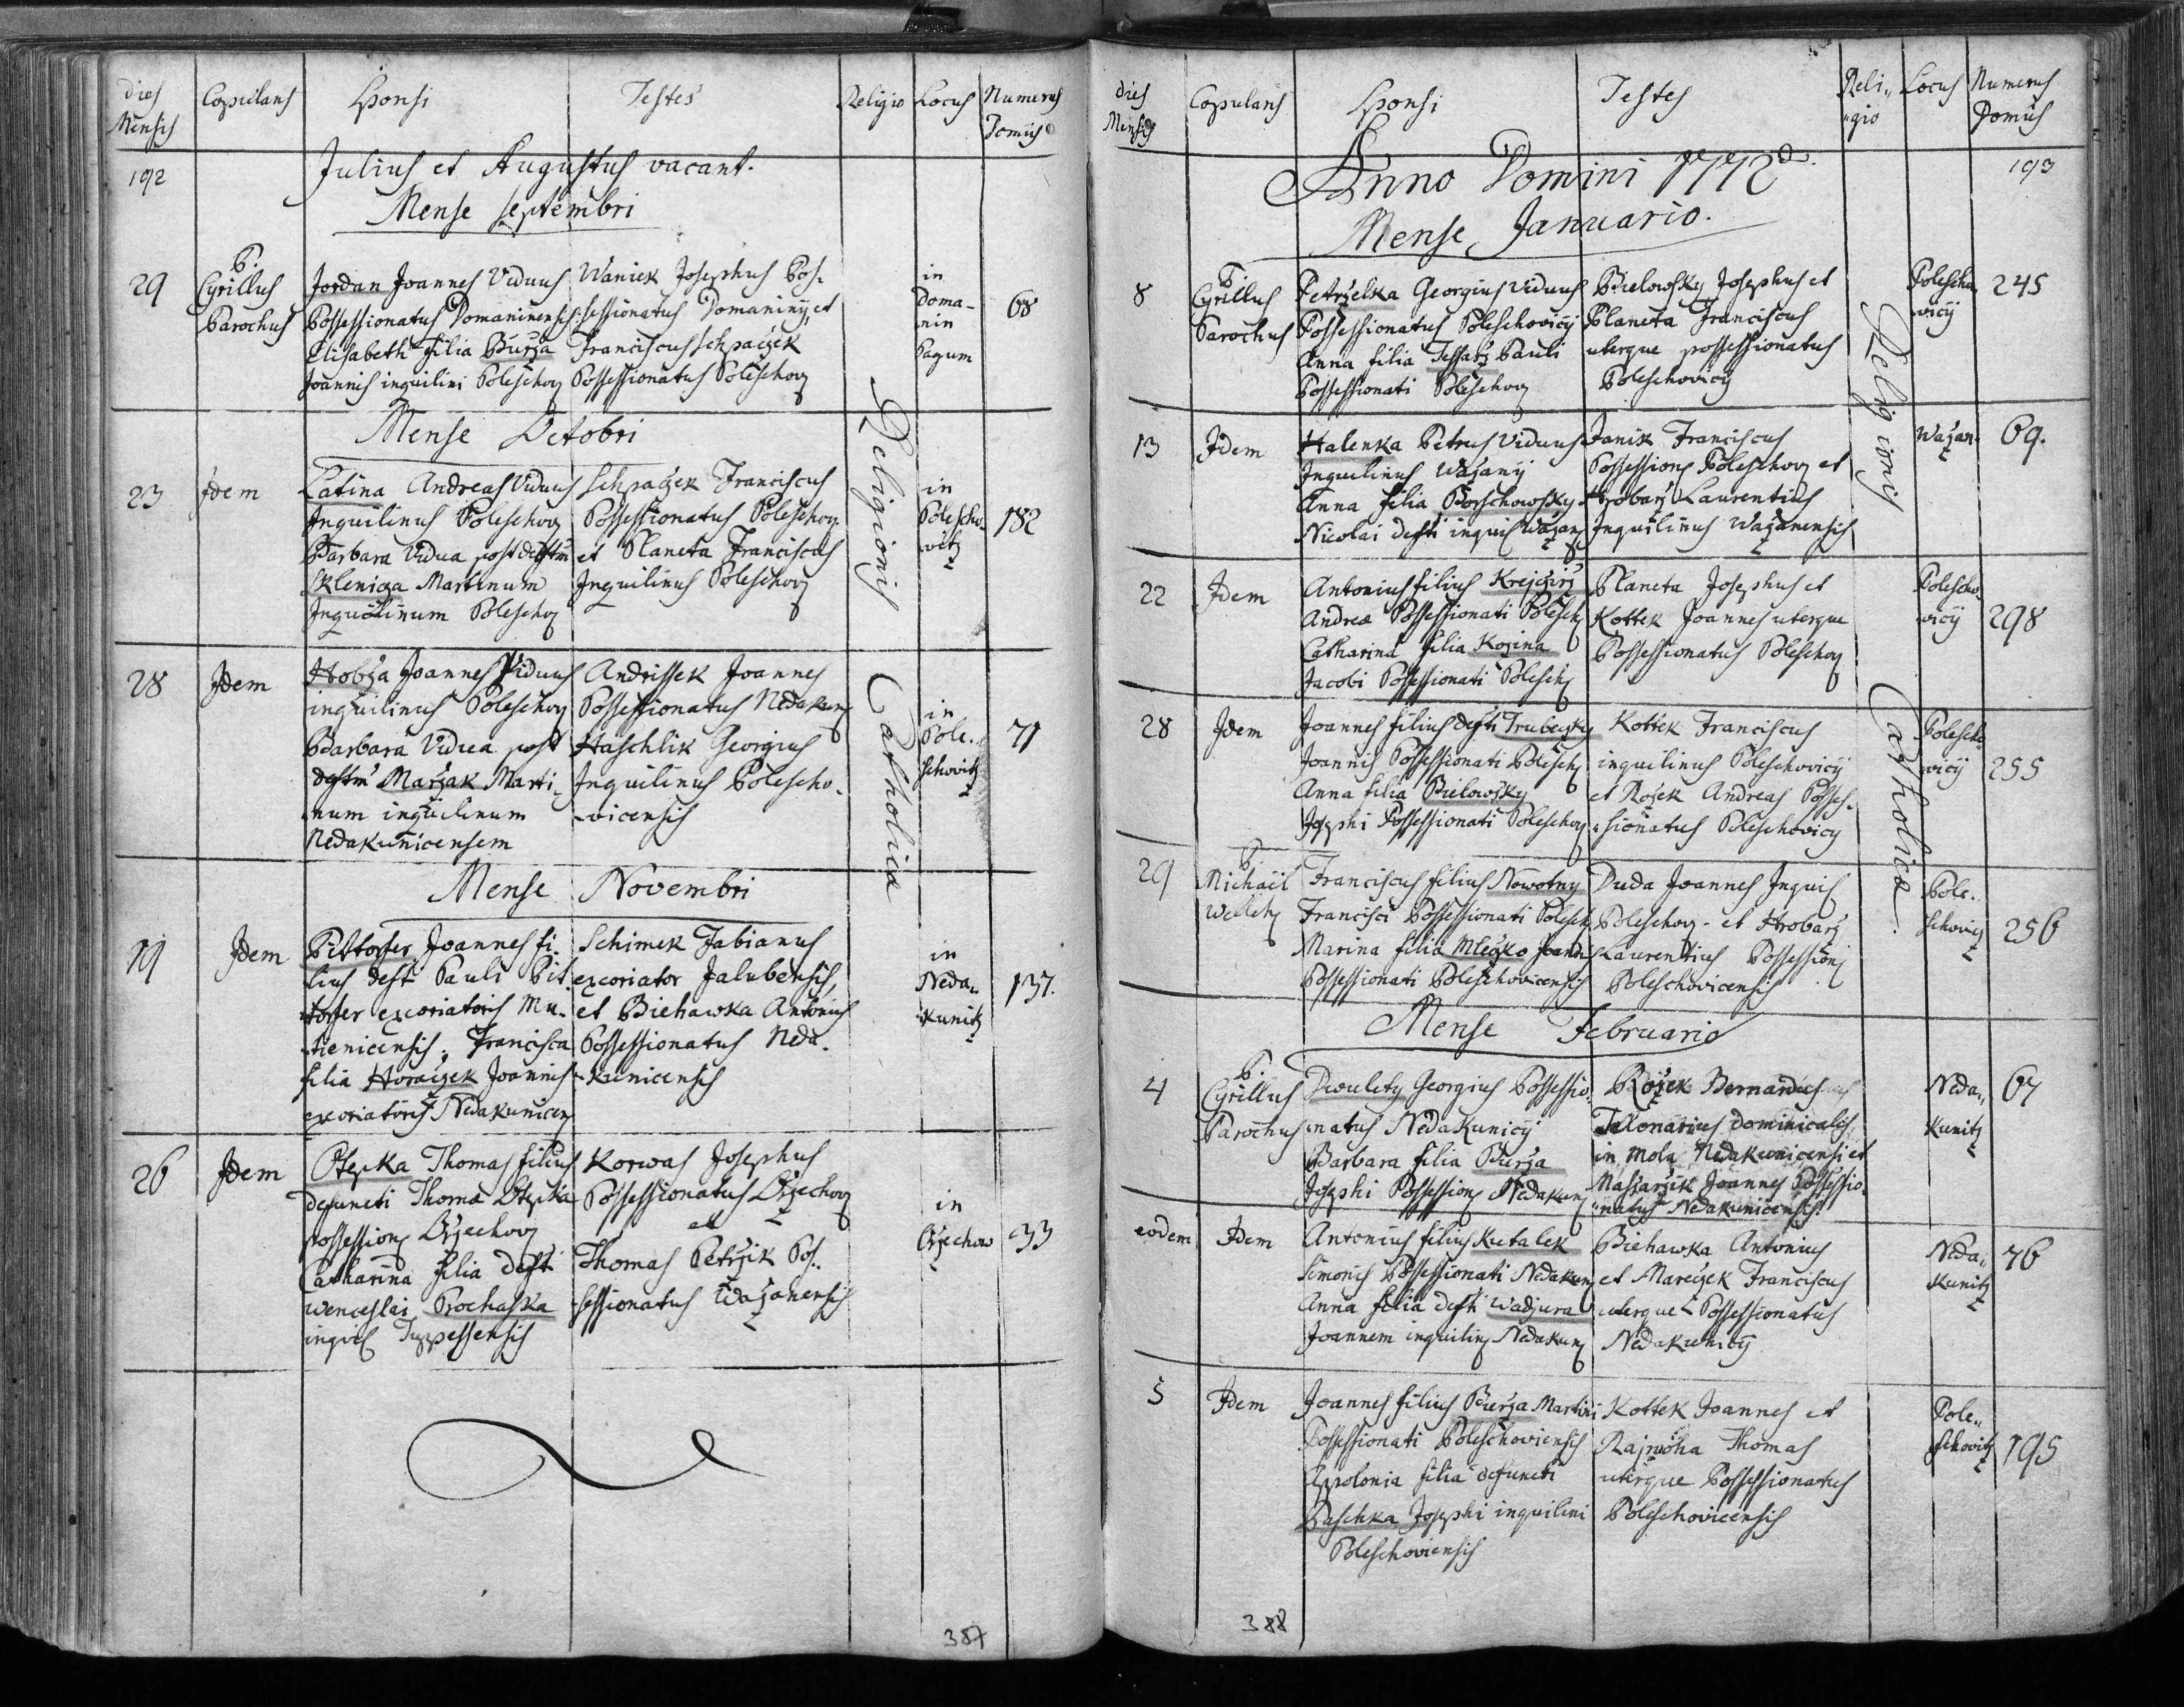 Dies Mensis
Copulans
Sponsi
Testes
Religio
Locus
Numerus Domus
192
Julius et Augustus vacant.
Mense septembri
29
P.
Cyrillus
Parochus
Jordan Joannes Viduus
Possessionatus Domaninensis
Elisabeth filia Burža
Joannis inquilini Poleschov
Waniek Josephus Pos-
sessionatus Domaniny, et
Franciscus Schpaczek
Possessionatus Poleschov
in
Doma-
nin
Pagum
68
Mense Octobri
23
Idem
Latina Andreas Viduus
Inquilinus Poleschov
Barbara Vidua post defctm
Skleniča Martinum
Inquilinum Polescho
Schpaczek Franciscus
Possessionatus Poleschov
et Planeta Franciscus
Inquilinus Poleschov
in
Polescho-
witz
182
28
Idem
Hobža Joannes Viduus
inquilinus Poleschov
Barbara Vidua post
defctm Maržak Marti-
num inquilinum
Nedakunicensem
Andrissek Joannes
Possessionatus Nedakun
Haschlik Georgius
Inquilinus Polescho-
-vicensis
in
Pole-
schovitz
71
Religionis Catholicæ
Mense Novembri
19
Idem
Pittorfer Joannes fi-
lius deft Pauli Pit-
torfer excoriatoris Mu-
-tienicensis, Francisca
filia Horaczek Joannis
excoriatoris Nedakunicen
Schimek Fabianus
excoriator Jalubensis,
et Biehawka Antonius
Possessionatus Neda-
-kunicensis
in
Neda-
kunitz
137.
26
Idem
Otepka Thomas filius
defuncti Thomæ Otepka
possession Orzechov
Catharina filia deft
Wenceslai Prochaska
inquil Tuppessensis
Korwas Josephus
Possessionatus Orzechov
et
Thomas Petržik Pos-
-sessionatus Wažanensis
in
Orzechow
33
387
Dies Mensis
Copulans
Sponsi
Testes
Reli-
-gio
Locus
Numerus Domus
193
Anno Domini 1772do.
Mense Januario.
8
P.
Cyrillus
Parochus
Petrželka Georgius Viduus
Possessionatus Poleschovicÿ
Anna filia Tessarž Pauli
Possessionati Poleschov
Bielowsky Josephus et
Planeta Franciscus
uterque possessionatus
Poleschovicÿ
Polescho-
vicÿ
245
13
Idem
Halenka Petrus Viduus
Inquilinus Wažanÿ
Anna filia Borschowsky
Nicolai defti inquil Wažan
Janik Franciscus
Possession Poleschov et
Hrobarž Laurentius
Inquilinus Wažanensis
Wažan-
69.
22
Idem
Antonius filius Krejčirž
Andreæ Possessionati Polesch
Catharina filia Kožina
Jacobi Possessionati Polesch
Planeta Josephus et
Kottek Joannes uterque
Possessionatus Poleschov
Polescho-
vicÿ
298
28
Idem
Joannes filius defti Trubeczky
Joannis Possessionati Polesch
Anna filia Bielowsky
Josephi Possessionati Poleschov
Kottek Franciscus
inquilinus Poleschovicÿ
et Rožek Andreas Posses-
-sionatus Poleschovicy
Polescho-
vicÿ
255
29
P.
Michaël
Francisci filius Nowotny
Francisci Possessionati Polesch
Marina filia Mleczko Joannis
Possessionati Poleschovicensis
Duda Joannes Inquil
Poleschov - et Hrobarž
Laurentius Possession
Poleschovicensis
Pole-
schovicz
256
Religionis Catholicæ.
Mense Februario
4
P.
Cyrillus
Parochus
Dwulety Georgius Possessio-
-natus Nedakunicÿ
Barbara filia Burža
Josephi Possession Nedakun
Rožek Bernardus
Telonarius Dominicalis
in mola Nedakunicensi et
Massaržik Joannes Possessio-
-natus Nedakunicensis
Neda-
kunitz
67
eodem
Idem
Antonius filius Kutalek
Simonis Possessionati Nedakun
Anna filia defti Wadjura
Joannem inquilin Nedakun
Biehawka Antonius
et Mareczek Franciscus
uterque Possessionatus
Nedakunicÿ
Neda-
kunitz
76
5
Idem
Joannes filius Burža Martini
Possessionati Poleschoviensis
Appolonia filia defuncti
Daschka Josephi inquilini
Poleschoviensis
Kottek Joannes et
Rajnoha Thomas
uterque Possessionatus
Poleschovicensis
Pole-
schovitz
195
388